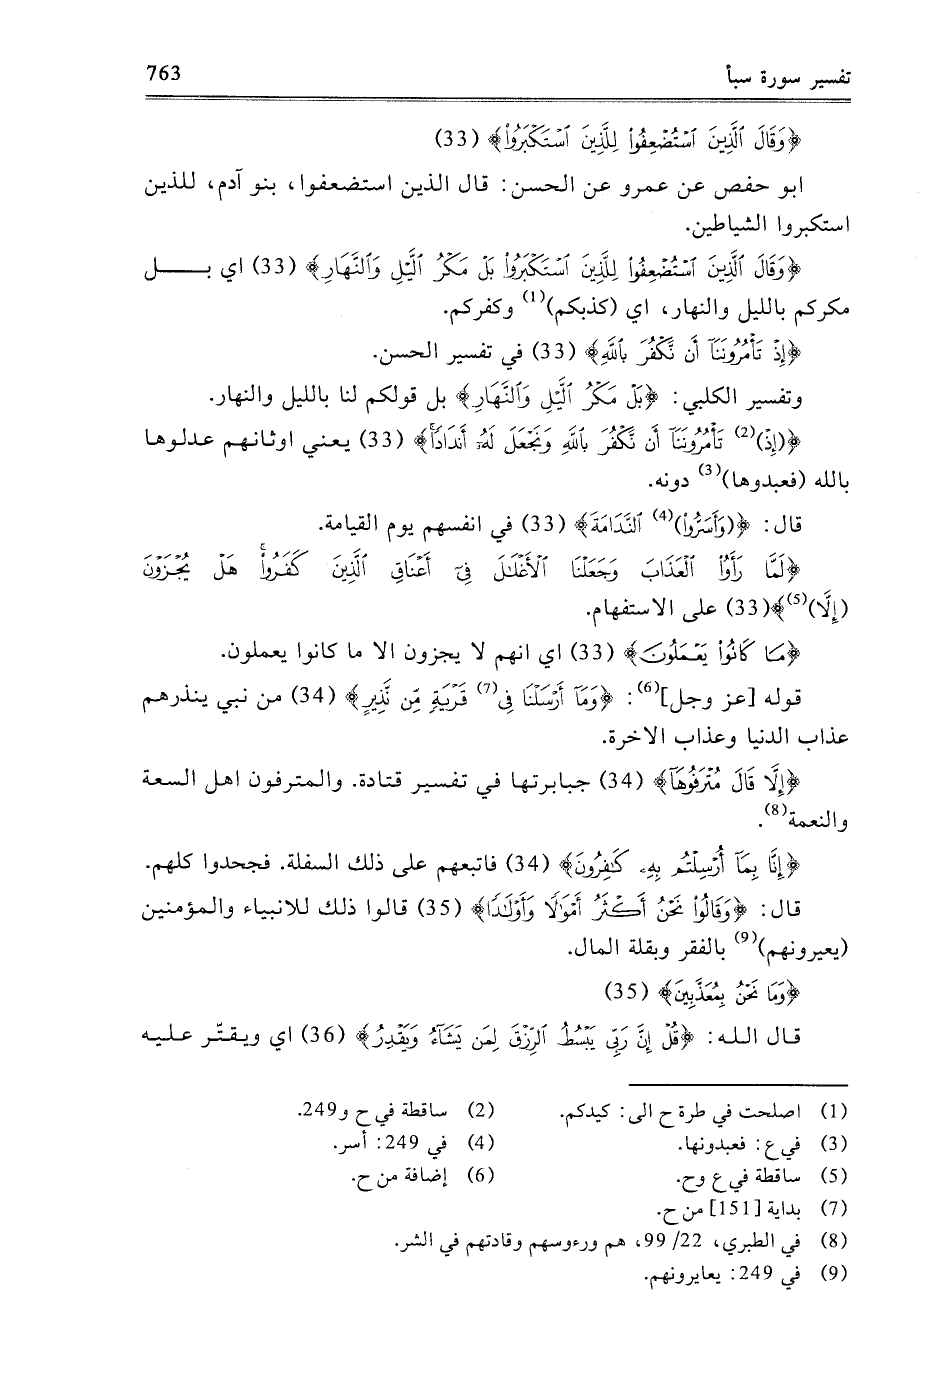 تفسير سورة سبأ 763
﴿وَقَالَ ٱلَّذِينَ ٱسْتُضْعِفُواْ لِلَّذِينَ ٱسْتَكْبَرُواْ﴾ (33)
ابو حفص عن عمرو عن الحسن: قال الذين استضعفوا، بنو آدم، للذين
استكبروا الشياطين.
﴿وَقَالَ ٱلَّذِينَ ٱسْتُضْعِفُواْ لِلَّذِينَ ٱسْتَكْبَرُواْ بَلْ مَكْرُ ٱلَّيْلِ وَٱلنَّهَارِ﴾ (33) اي بـــــل
مكركم بالليل والنهار، اي (كذبكم)(1) وكفركم.
﴿إِذْ تَأْمُرُونَنَآ أَن نَّكْفُرَ بِٱللَّهِ﴾ (33) في تفسير الحسن.
وتفسير الكلبي: ﴿بَلْ مَكْرُ ٱلَّيْلِ وَٱلنَّهَارِ﴾ بل قولكم لنا بالليل والنهار.
﴿(إِذْ)(2) تَأْمُرُونَنَآ أَن نَّكْفُرَ بِٱللَّهِ وَنَجْعَلَ لَهُۥٓ أَندَادًا﴾ (33) يعني اوثانهم عدلوها
بالله (فعبدوها)(3) دونه.
قال: ﴿(وَأَسَرُّواْ)(4) ٱلنَّدَامَةَ﴾ (33) في انفسهم يوم القيامة.
﴿لَمَّا رَأَوُاْ ٱلْعَذَابَ وَجَعَلْنَا ٱلْأَغْلَٰلَ فِىٓ أَعْنَاقِ ٱلَّذِينَ كَفَرُواْ هَلْ يُجْزَوْنَ
(إِلَّا)(5)﴾(33) على الاستفهام.
﴿مَا كَانُواْ يَعْمَلُونَ﴾ (33) اي انهم لا يجزون الا ما كانوا يعملون.
قوله [عز وجل](6): ﴿وَمَآ أَرْسَلْنَا فِى(7) قَرْيَةٍ مِّن نَّذِيرٍ﴾ (34) من نبي ينذرهم
عذاب الدنيا وعذاب الاخرة.
﴿إِلَّا قَالَ مُتْرَفُوهَآ﴾ (34) جبابرتها في تفسير قتادة. والمترفون اهل السعة
والنعمة(8).
﴿إِنَّا بِمَآ أُرْسِلْتُم بِهِۦ كَٰفِرُونَ﴾ (34) فاتبعهم على ذلك السفلة. فجحدوا كلهم.
قال: ﴿وَقَالُواْ نَحْنُ أَكْثَرُ أَمْوَٰلًا وَأَوْلَٰدًا﴾ (35) قالوا ذلك للانبياء والمؤمنين
(يعيرونهم)(9) بالفقر وبقلة المال.
﴿وَمَا نَحْنُ بِمُعَذَّبِينَ﴾ (35)
قال الله: ﴿قُلْ إِنَّ رَبِّى يَبْسُطُ ٱلرِّزْقَ لِمَن يَشَآءُ وَيَقْدِرُ﴾ (36) اي ويقتّر عليه
(1) اصلحت في طرة ح الى: كيدكم. (2) ساقطة في ح و249.
(3) في ع: فعبدونها. (4) في 249: أسر.
(5) ساقطة في ع وح. (6) إضافة من ح.
(7) بداية [151] من ح.
(8) في الطبري، 22/ 99، هم ورءوسهم وقادتهم في الشر.
(9) في 249: يعايرونهم.